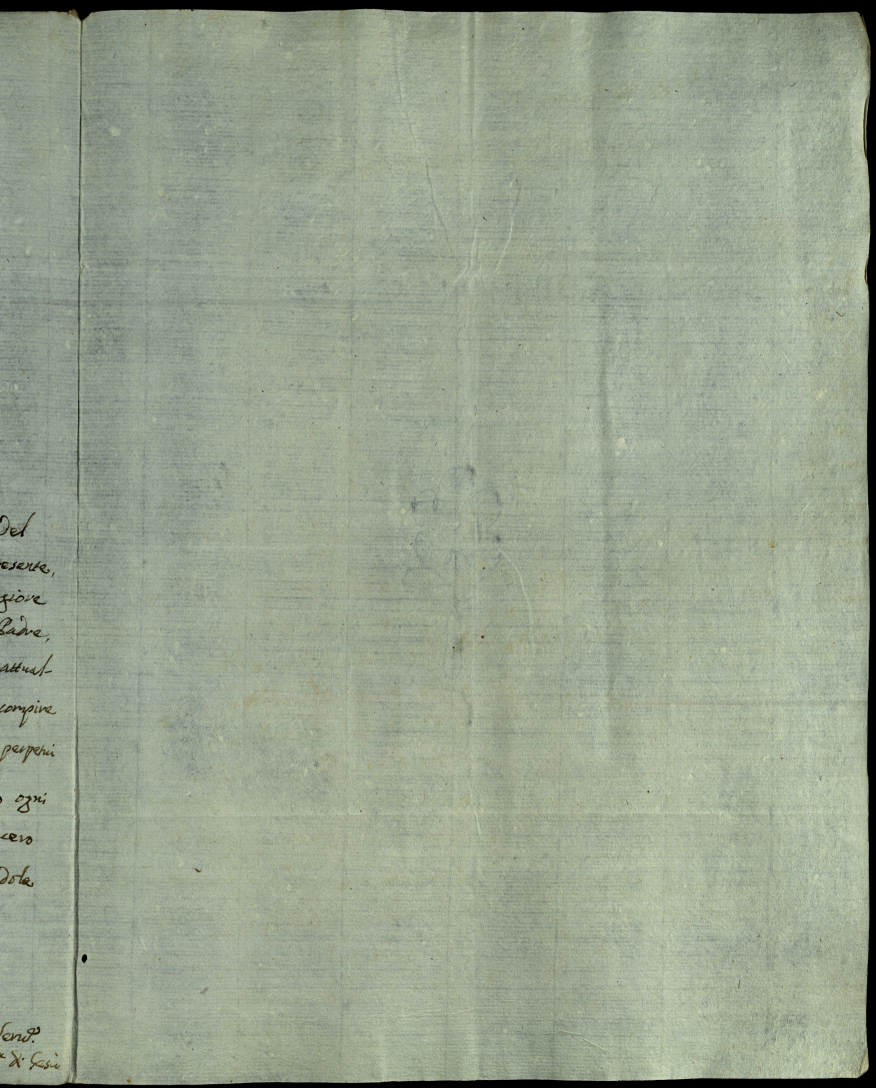 Del
esente,
giore
Padre,
attual-
compire
perpetui
ogni
cero
dola